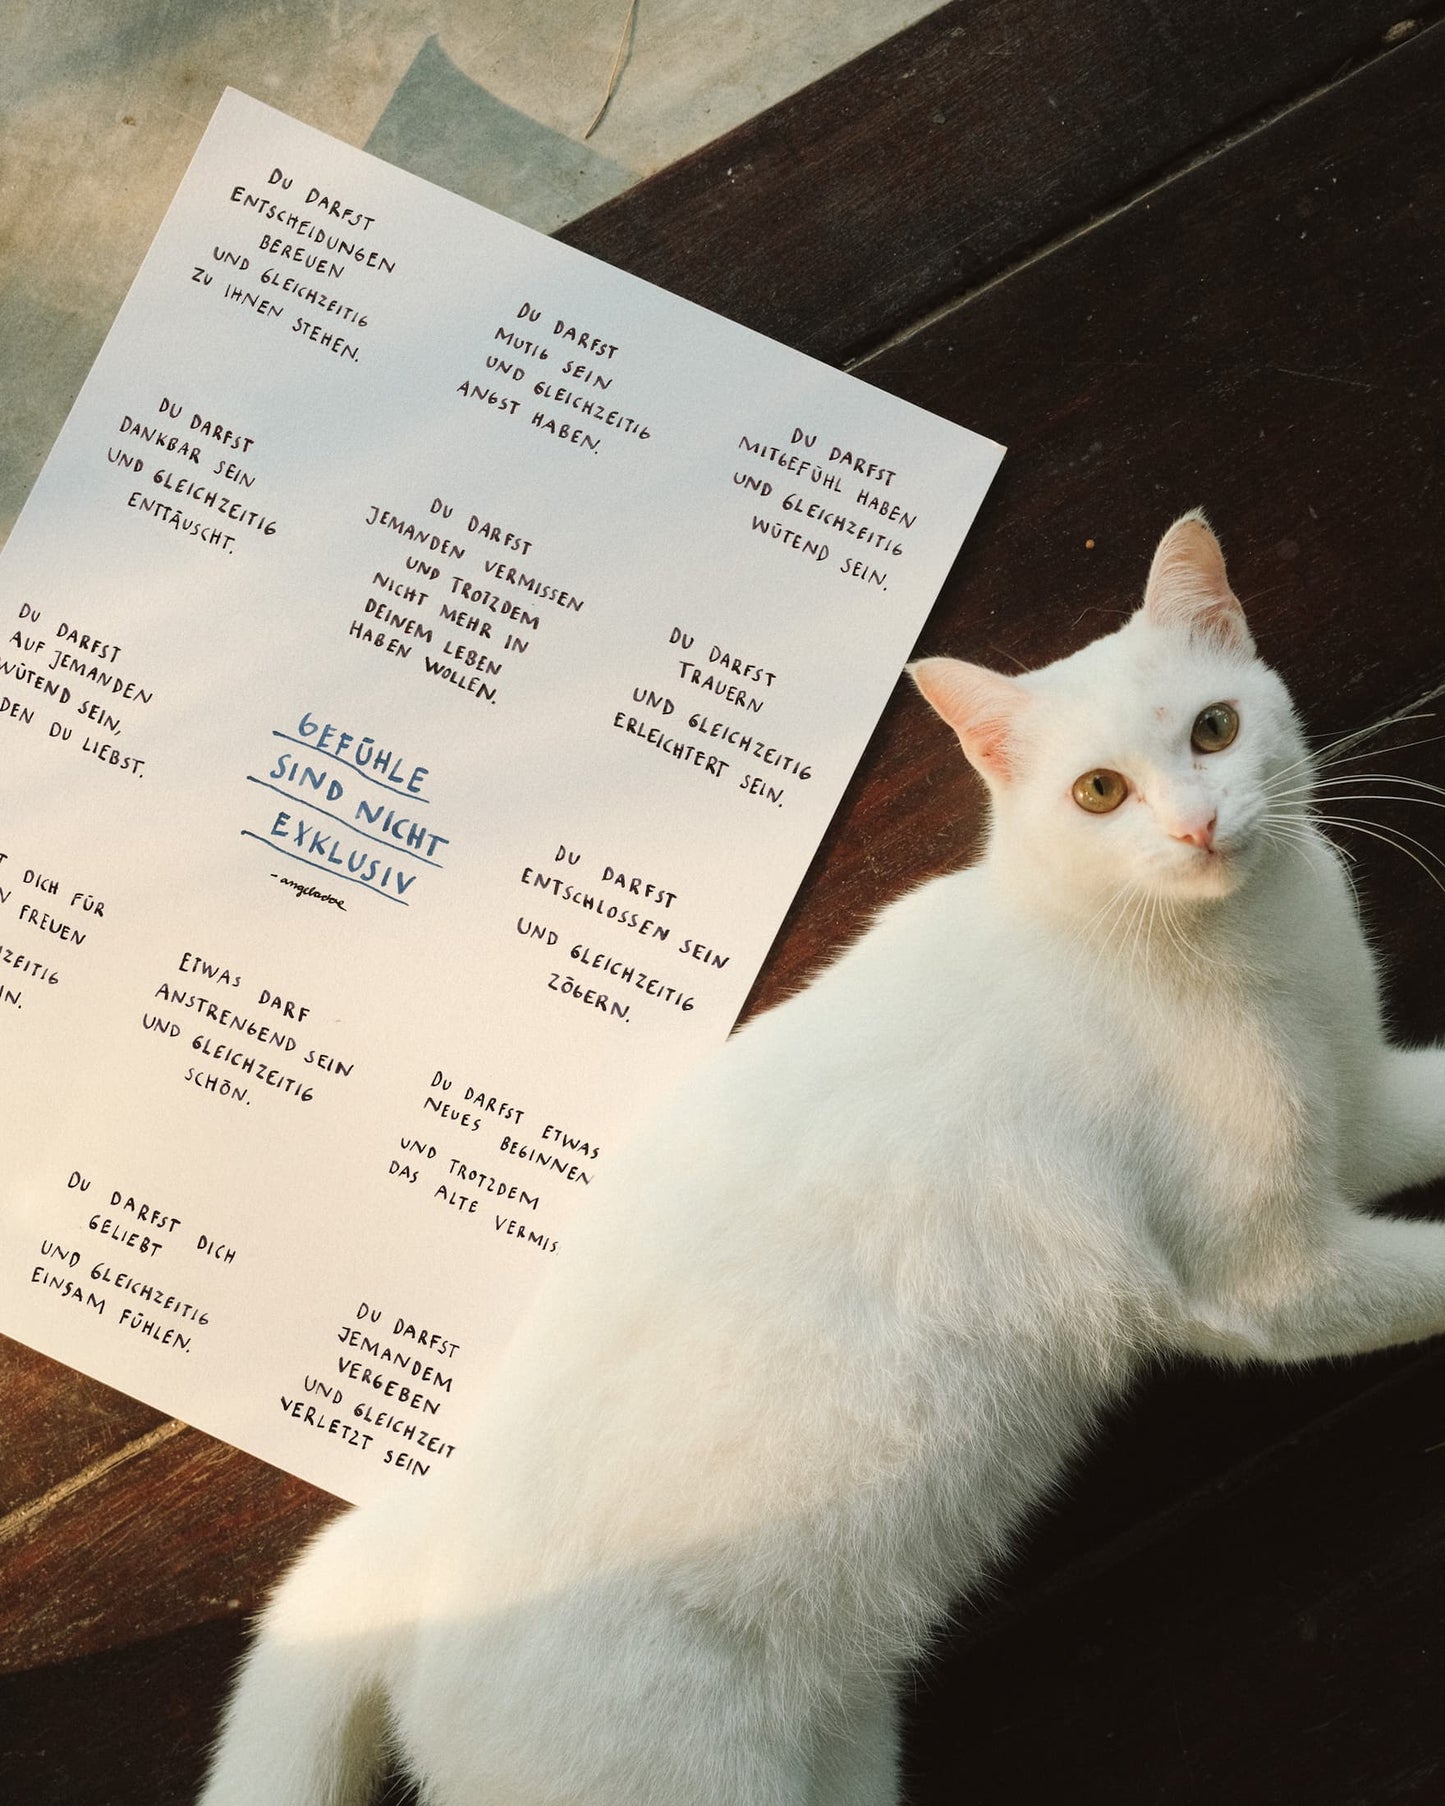 DU DARFST
ENTSCHEIDUNGEN
BEREUEN
UND GLEICHZEITIG
ZU IHNEN STEHEN.
DU DARFST
MUTIG SEIN
UND GLEICHZEITIG
ANGST HABEN.
DU DARFST
MITGEFÜHL HABEN
UND GLEICHZEITIG
WÜTEND SEIN.
DU DARFST
DANKBAR SEIN
UND GLEICHZEITIG
ENTTÄUSCHT.
DU DARFST
JEMANDEN VERMISSEN
UND TROTZDEM
NICHT MEHR IN
DEINEM LEBEN
HABEN WOLLEN.
DU DARFST
TRAUERN
UND GLEICHZEITIG
ERLEICHTERT SEIN.
DU DARFST
AUF JEMANDEN
WÜTEND SEIN,
DEN DU LIEBST.
GEFÜHLE
SIND NICHT
EXKLUSIV
DU DARFST
ENTSCHLOSSEN SEIN
UND GLEICHZEITIG
ZÖGERN.
DICH FÜR
FREUEN
ETWAS DARF
ANSTRENGEND SEIN
UND GLEICHZEITIG
SCHÖN.
DU DARFST ETWAS
NEUES BEGINNEN
UND TROTZDEM
DAS ALTE VERMIS
DU DARFST DICH
GELIEBT
UND GLEICHZEITIG
EINSAM FÜHLEN.
DU DARFST
JEMANDEM
VERGEBEN
UND GLEICHZEIT
VERLETZT SEIN